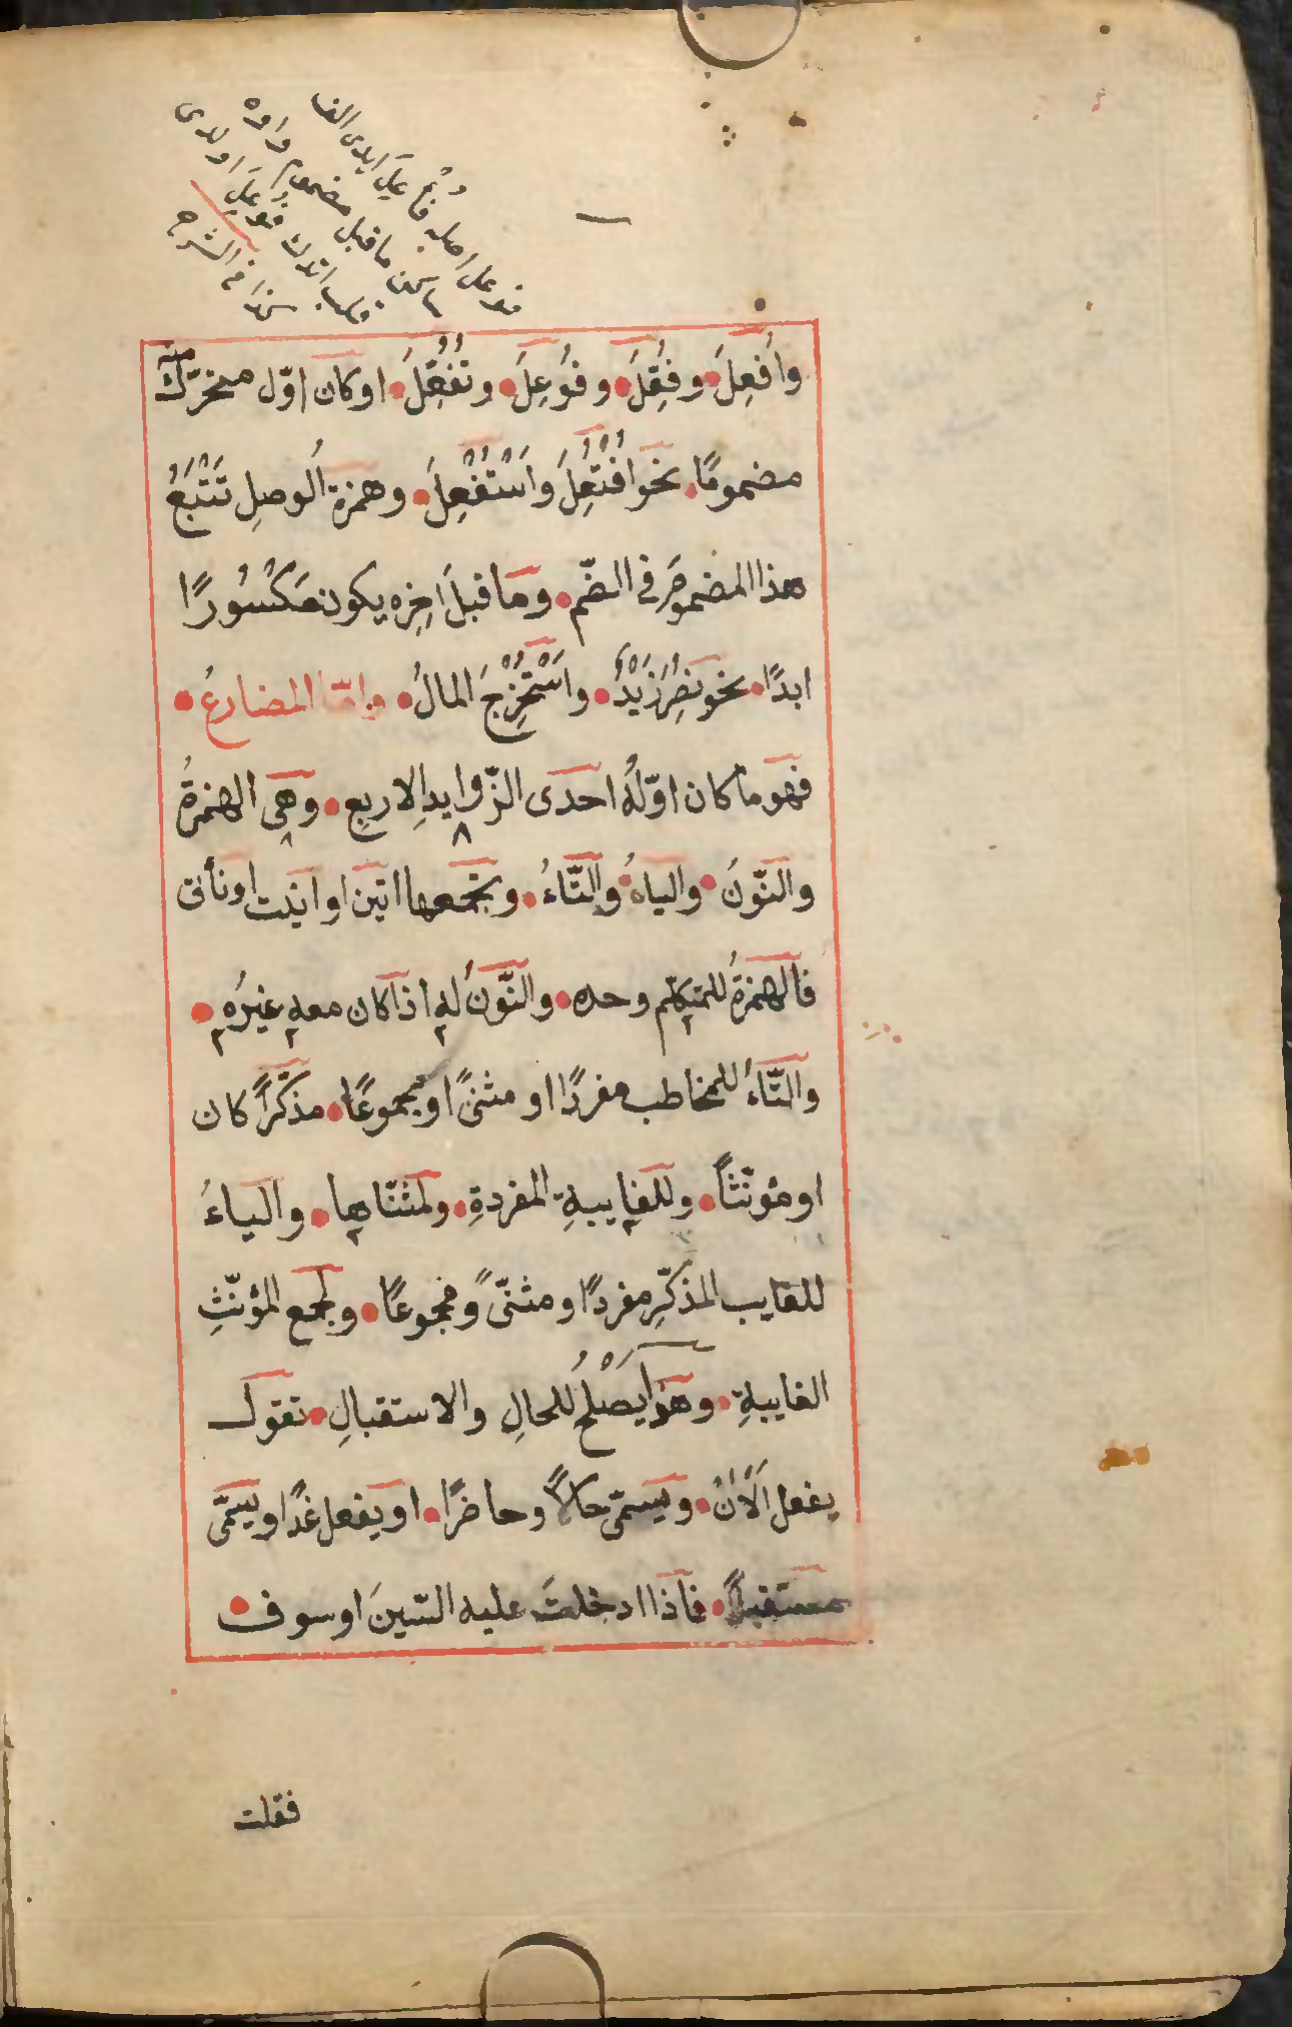 فوعل اصله فُاْعِلَ ايدى الفا
ساكن ما قبل مضموم واوه
قلب اتدك فوعِلَ اولدى
كذا فى الشرح
وَاُفْعِلَ وفُعِّلَ وفُوعِلَ وتُفُعِّلَ اوكان اوّل متحرّك منه
مضمومًا نحو اُفْتُعِلَ وَاُسْتُفْعِلَ وهمزة الوصلِ تَتْبَعُ
هذا المضمومَ فى الضّم ومَا قبلَ اخِرِه يكون مَكْسُورًا
ابدًا نحو نُصِرَ زَيْدٌ واُسْتُخْرِجَ المالُ وامّا المضارعُ
فهو ما كان اوّلُهُ احدَى الزّوايدِ الاربعِ وهِى الهمزةُ
والنّونُ والياءُ والتّاءُ ويَجمعها اتين او انيت او نأتى
فالهمزةُ للمتكلّم وحده والنّونُ له اذا كان معه غيرُه
والتّاءُ للمخاطب مفردًا او مثنىً او مجموعًا مذكّرًا كان
او مؤنّثًا وللغايبةِ المفردةِ ولمثنّاها والياءُ
للغايب المذكّرِ مفردًا ومثنّىً ومجموعًا ولجمع المؤنّثِ
الغايبةِ وهوَ يَصْلُحُ للحالِ والاستقبالِ تقول
يفعل اَلْآنَ ويسمّى حالاً وحاضرًا او يفعل غدًا ويسمّى
مستقبلاً فاذا ادخلتَ عليه السّينَ او سوف
فقلت